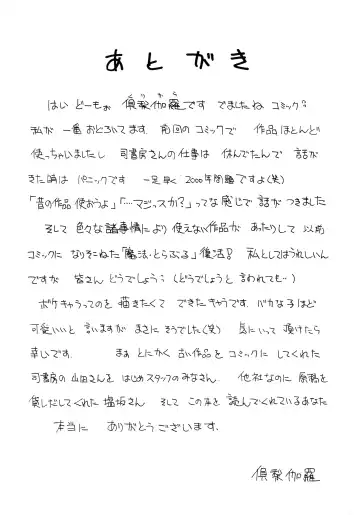 あとがき
はい どーもぉ 倶梨伽羅です でましたね コミック?
私が 一番 おどろいてます. 前回のコミックで 作品ほとんど
使っちゃいましたし 司書房さんの仕事は 休んでたんで 話が
きた時は パニックです 一足早く 2000年問題ですよ(笑)
「昔の作品 使おうよ」「…マジッスか?」ってな感じで 話がつきました
そして 色々な諸事情により 使えない作品が あたりして 以前
コミックに なりそこねた「魔法・とらぶる」復活? 私としてはうれしいん
ですが 皆さん どうでしょう? (どうでしょうと 言われても…)
ボケきゃらってのを 描きたくて できたきゃらです. バカな子ほど
可愛いいと 言いますが まさに そうでした(笑) 気にいって 頂けたら
幸いです. まぁ とにかく 古い作品を コミックに してくれた
司書房の 山田さんを はじめスタッフのみなさん. 他社なのに 原稿を
貸しだしてくれた 塩坂さん そして この本を 読んでくれているあなた
本当に ありがとうございます.
倶梨伽羅